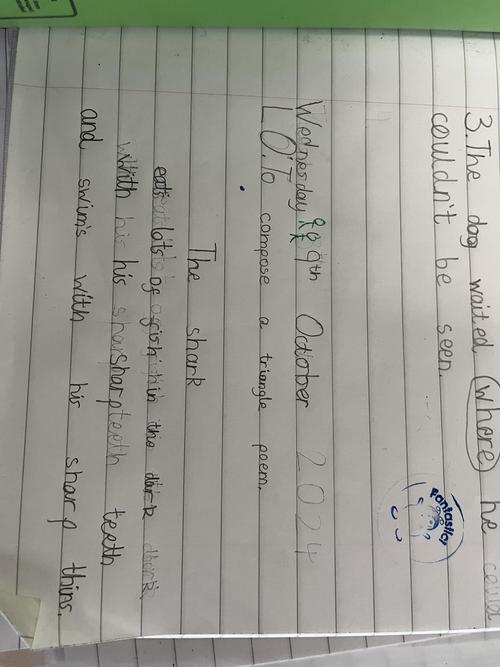 3. The dog waited where he could
couldn't be seen.
Fantastic!
Wednesday 9th October 2024
LO: To compose a triangle poem.
The shark
eats lots of fish in the dark
With his sharp teeth
and swim's with his sharp thins.